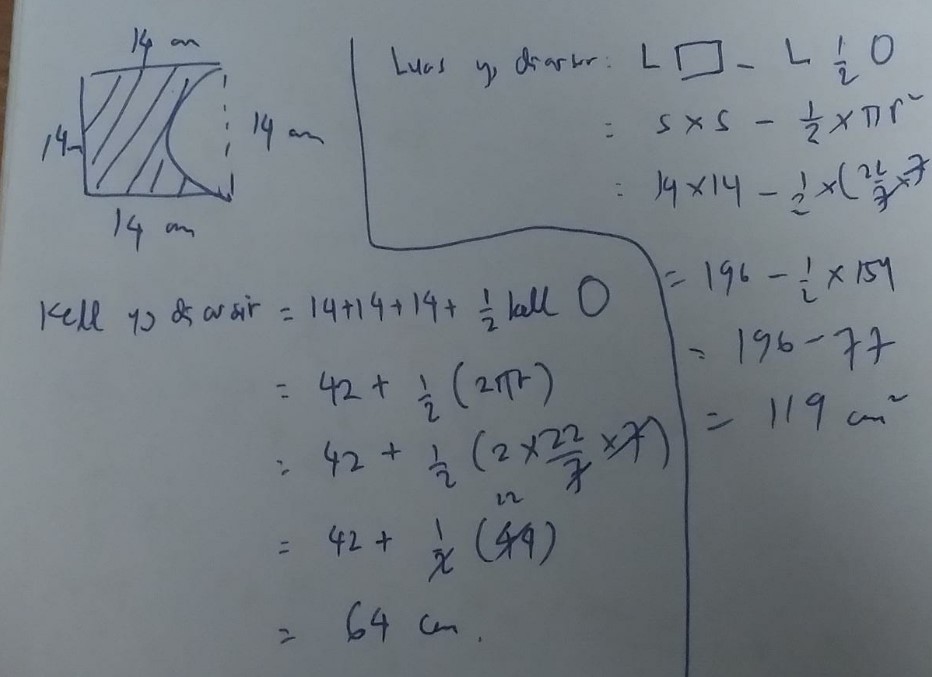 14 cm
14
14 cm
14 cm
Luas yg diarsir: L □ - L ½ O
= s x s - ½ x πr²
= 14 x 14 - ½ x (22/7 x 7
= 196 - ½ x 154
= 196 - 77
= 119 cm²
Kell yg diarsir = 14+14+14+ ½ kell O
= 42 + ½ (2πr)
= 42 + ½ (2 x 22/7 x 7)
22
= 42 + ½ (44)
= 64 cm.